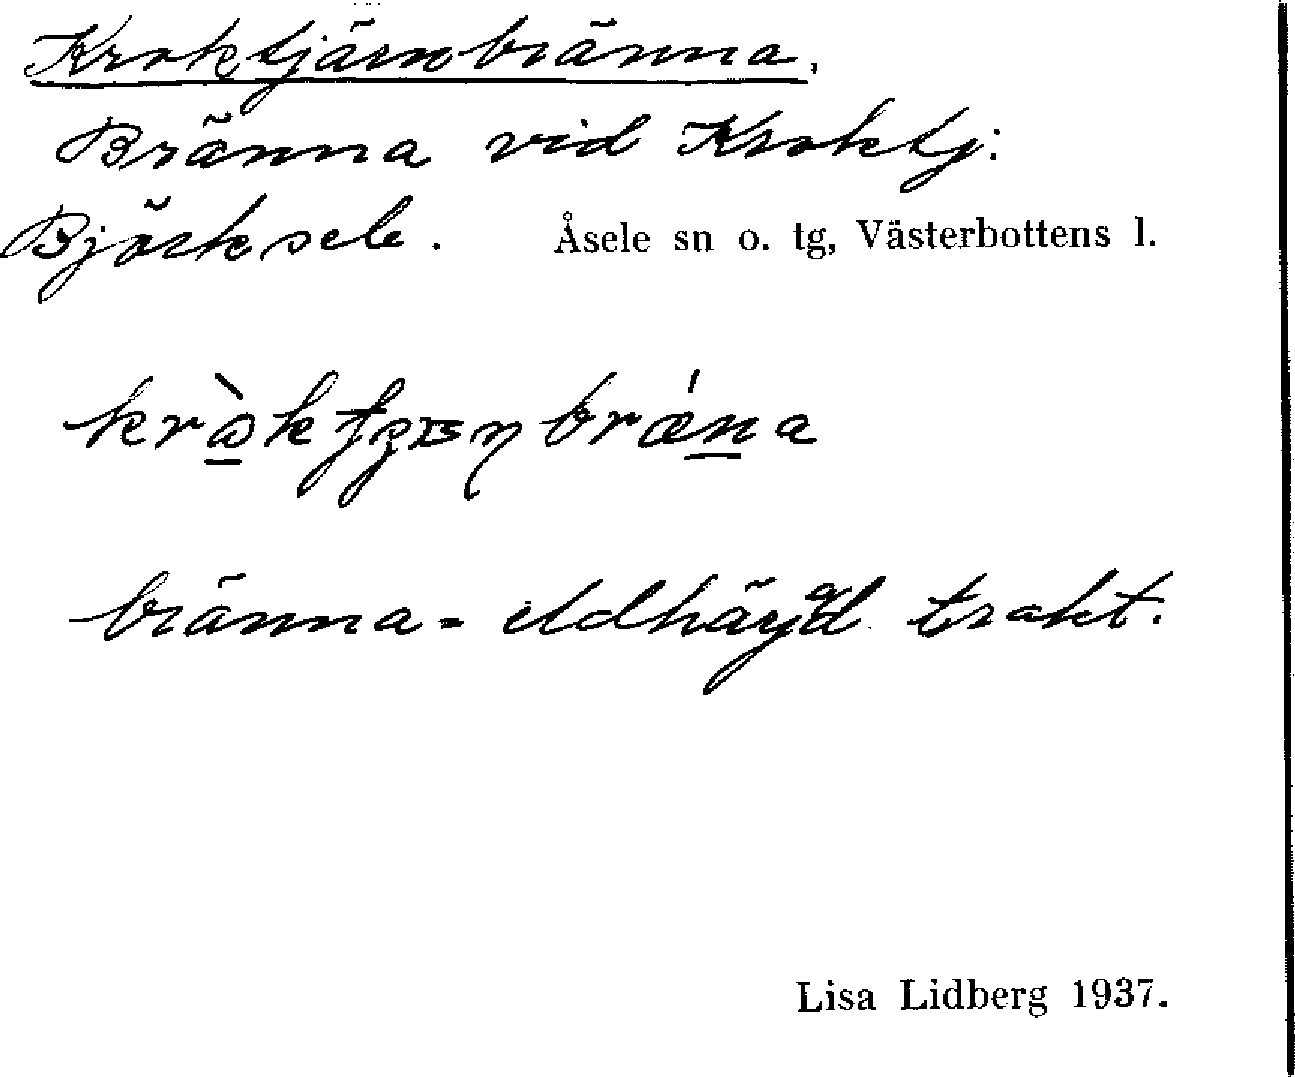 Kroktjärnbränna.
Bränna vid Kroktj:
Björksele. Åsele sn o. tg, Västerbottens l.
bränna = eldhärjad trakt.
Lisa Lidberg 1937.